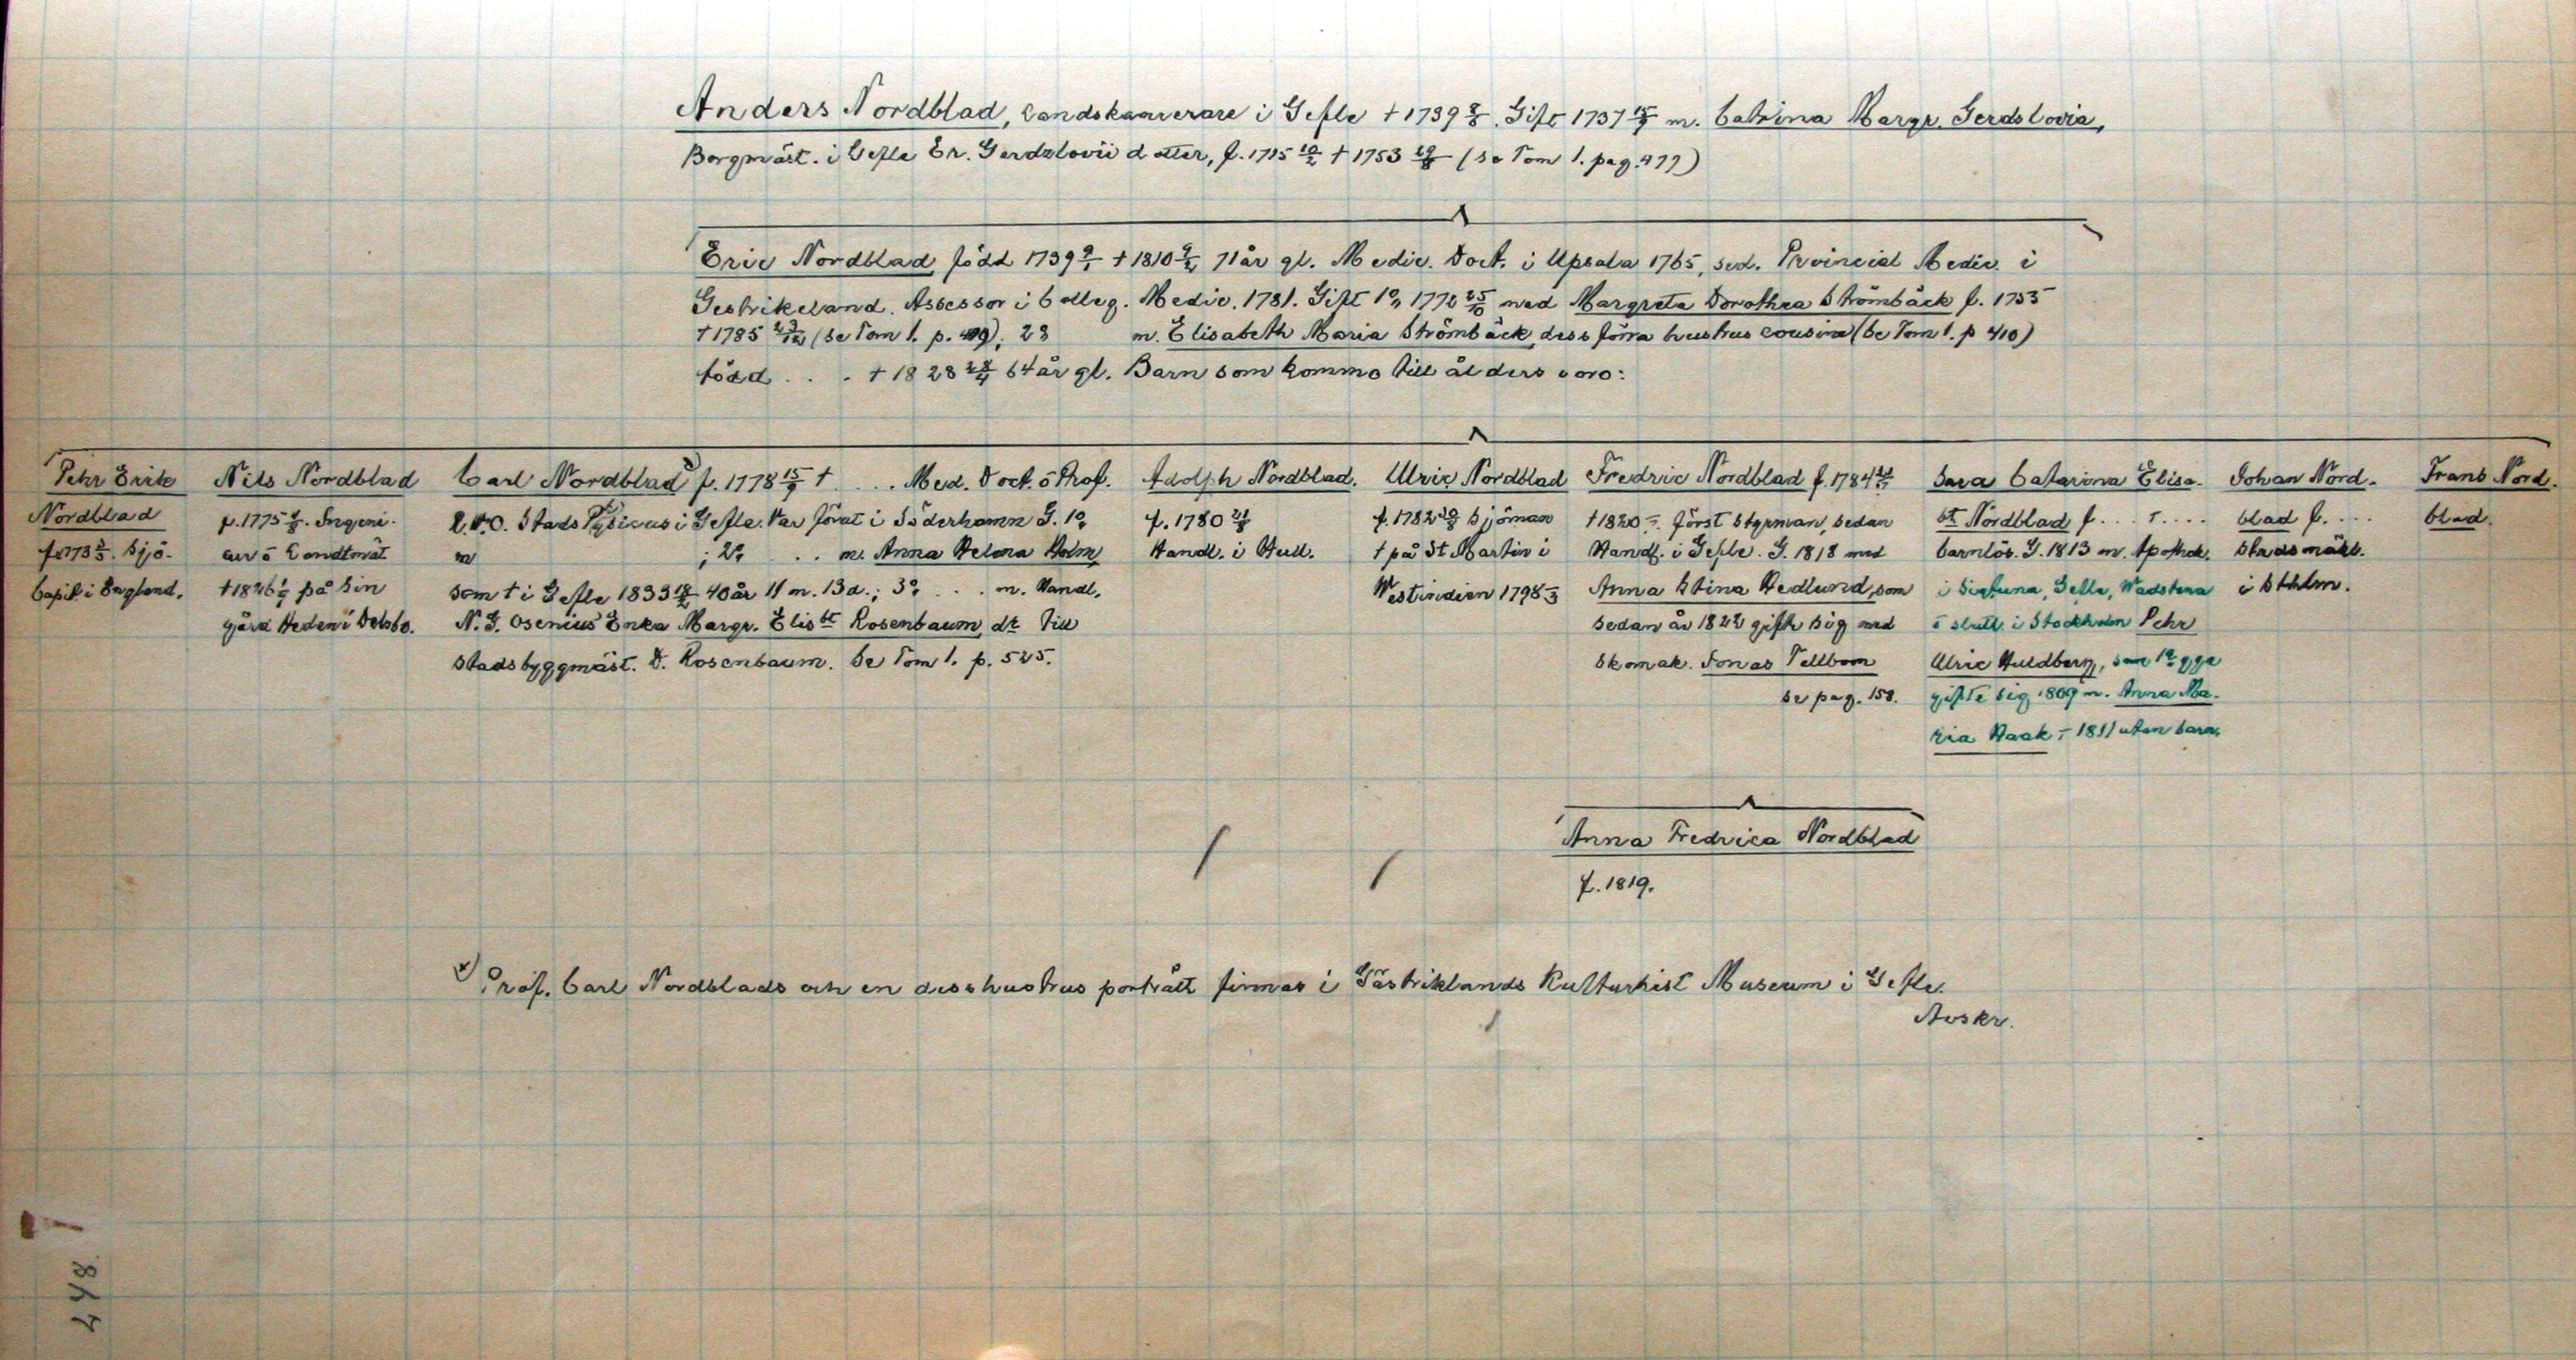 Anders Nordblad, Landskamerare i Gefle † 1739 8/8. Gift 1737 15/9 m. Catrina Margr. Gerdslovia,
Borgmäst. i Gefle Er. Gerdzlovii dotter, f. 1715 10/2 † 1753 29/8 (se Tom 1. pag. 477)
Eric Nordblad född 1739 9/1 † 1810 9/2 71 år gl. Medic. Doct. i Upsala 1765, sed. Provincial Medic. i
Gestrikeland. Assessor i Colleg. Medic. 1781. Gift 1o, 1772 25/10 med Margreta Dorothea Strömbäck f. 1755
† 1785 23/12 (se Tom 1. p. 409); 2o m. Elisabeth Maria Strömbäck, dess förra hustrus cousine (se Tom 1. p 410)
född . . . † 1828 28/4 64 år gl. Barn som kommo till ålders voro:
Pehr Erik
Nordblad
f. 1773 5/5. Sjö-
Capit. i England.
Nils Nordblad
f. 1775 4/8. Ingeni-
eur o Landtmät
† 1826 1/7 på sin
gård Heden i Delsbo.
Carl Nordblad x) f. 1778 15/9 † . . . Med. Doct. o Prof.
R.V.O. Stads Physicus i Gefle. Var förut i Söderhamn G. 1o,
m ; 2o . . m. Anna Helena Holm
som † i Gefle 1833 18/2 40 år 11 m. 13 d.; 3o . . . m. Handl.
N. G. Osenius Enka Margr. Elisbt Rosenbaum, dr till
stadsbyggmäst. D. Rosenbaum. Se Tom 1. p. 525.
Adolph Nordblad.
f. 1780 21/8
Handl. i Hull.
Ulric Nordblad
f. 1782 20/8 Sjöman
† på St Martin i
Westindien 1798 /3
Fredric Nordblad f. 1784 21/11
† 1820 . först Styrman, sedan
Handl. i Gefle. G. 1818 med
Anna Stina Hedlund, som
sedan år 1822 gifte sig med
Skomak. Jonas Tellbom
se pag. 158.
Sara Catarina Elisa-
bt Nordblad f. . . † . . . .
barnlös. G. 1813 m. Apothek.
i Sigtuna, Gefle, Wadstena
o slutl. i Stockholm Pehr
Ulric Huldberg, som 1a gge
gifte sig 1809 m. Anna Ma-
ria Haak † 1811 utan barn.
Johan Nord-
blad f. . . .
Stadsmäkl.
i Sthlm.
Frans Nord-
blad.
Anna Fredrica Nordblad
f. 1819.
x) Prof. Carl Nordblads och en dess hustrus porträtt finnas i Gästriklands Kulturhist Museum i Gefle.
Avskr.
248